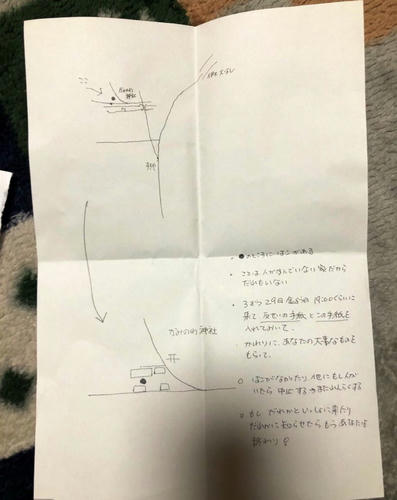 ここ
神社
かみの町 神社
●のところにはこがある
ここは人がすんでいない家だから
だれもいない
3がつ29日 金よう日 19:00ぐらいに
来て 反せいの手紙とこの手紙を
入れておいて。
かわりに、あなたの大事なものを
もらって。
はこがなかったり、他にもし人が
いたら 中止する。またれんらくする
もし だれかといっしょに来たり
だれかに知らせたら もうあなたは
終わり!